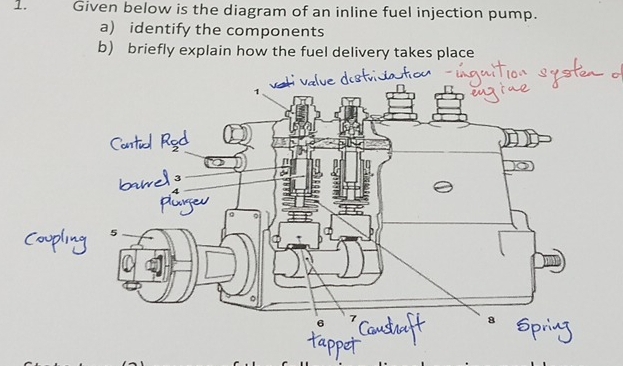 1. Given below is the diagram of an inline fuel injection pump.
a) identify the components
b) briefly explain how the fuel delivery takes place
valve distribution - ingnition system of
engine
1
Control Rod
2
barrel 3
4
Plunger
Coupling 5
6
tappet
7 Camshaft
8 Spring